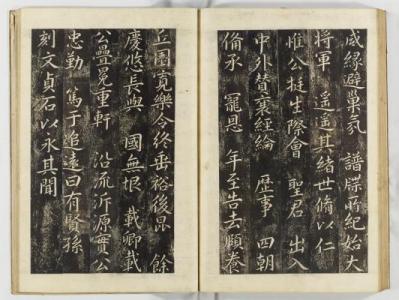 咸緣避巢氛 譜牒所紀始大
將軍 遥遥其緒世脩以仁
惟公挺生際會 聖君 出入
中外賛襄經綸 歷事 四朝
俻承 寵恩 年至告去頤養
丘園寛樂令終垂裕後昆 餘
慶悠長與 國無垠 載卿載
公疊冕重軒 沿流泝源實公
忠勤 篤于追遠曰有賢孫
刻文貞石以永其聞